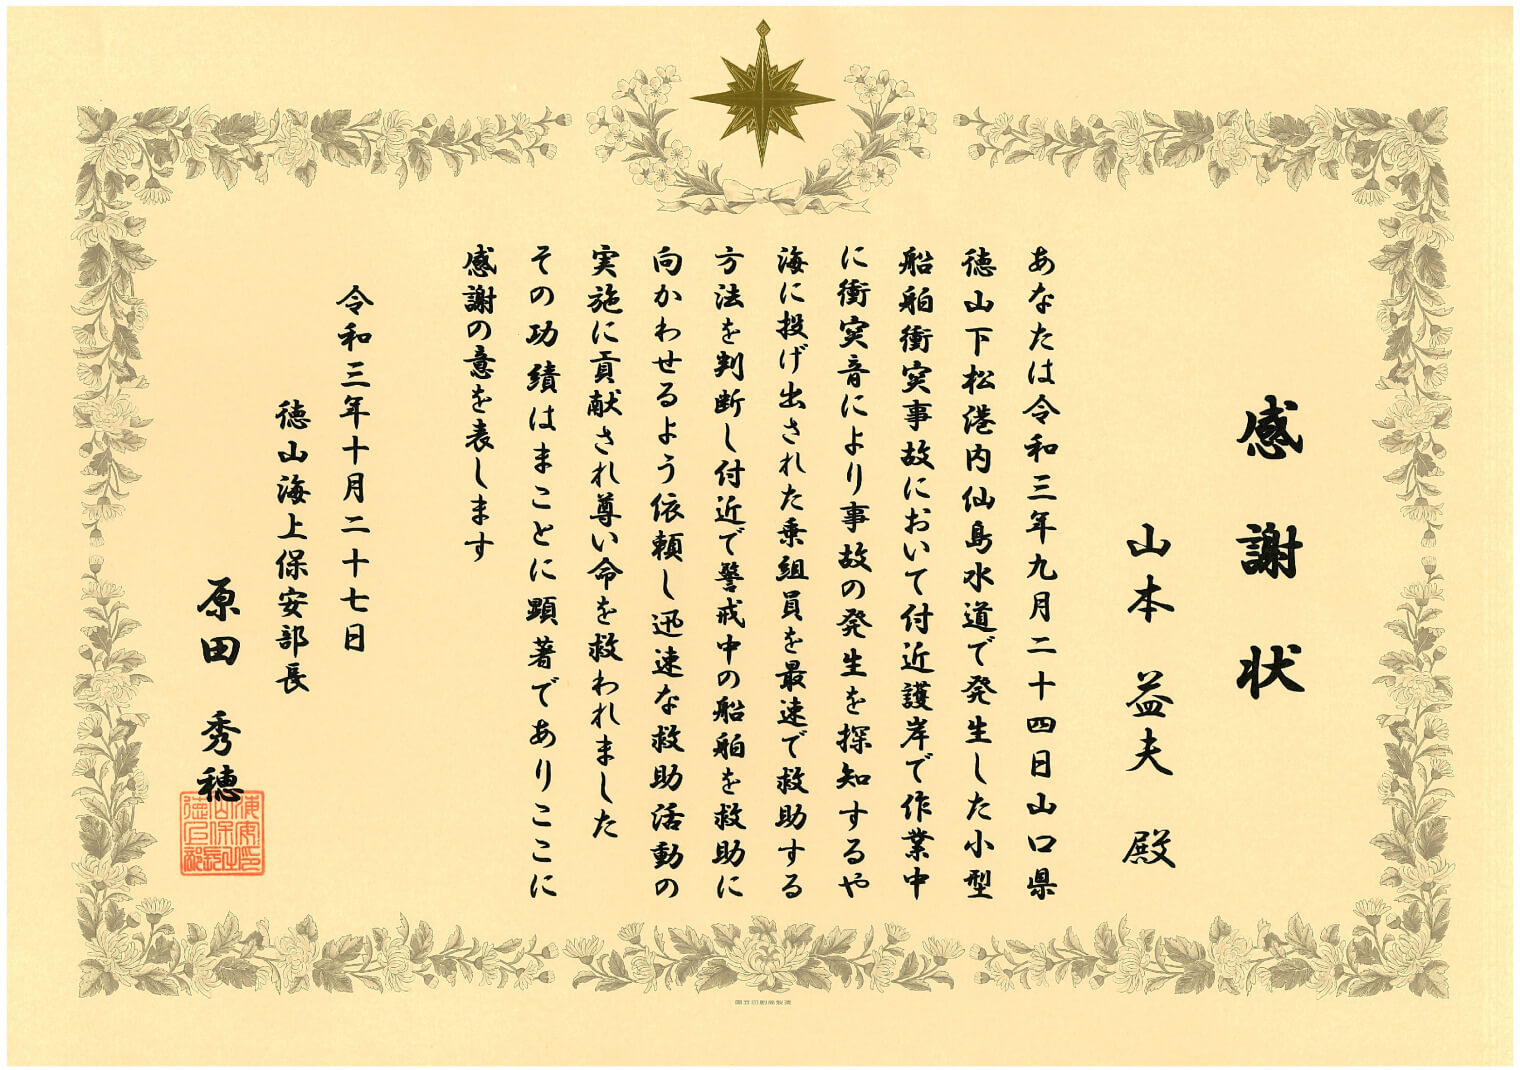 感謝状
山本 益夫 殿
あなたは令和三年九月二十四日山口県
徳山下松港内仙島水道で発生した小型
船舶衝突事故において付近護岸で作業中
に衝突音により事故の発生を探知するや
海に投げ出された乗組員を最速で救助する
方法を判断し付近で警戒中の船舶を救助に
向かわせるよう依頼し迅速な救助活動の
実施に貢献され尊い命を救われました
その功績はまことに顕著でありここに
感謝の意を表します
令和三年十月二十七日
徳山海上保安部長
原田 秀穂